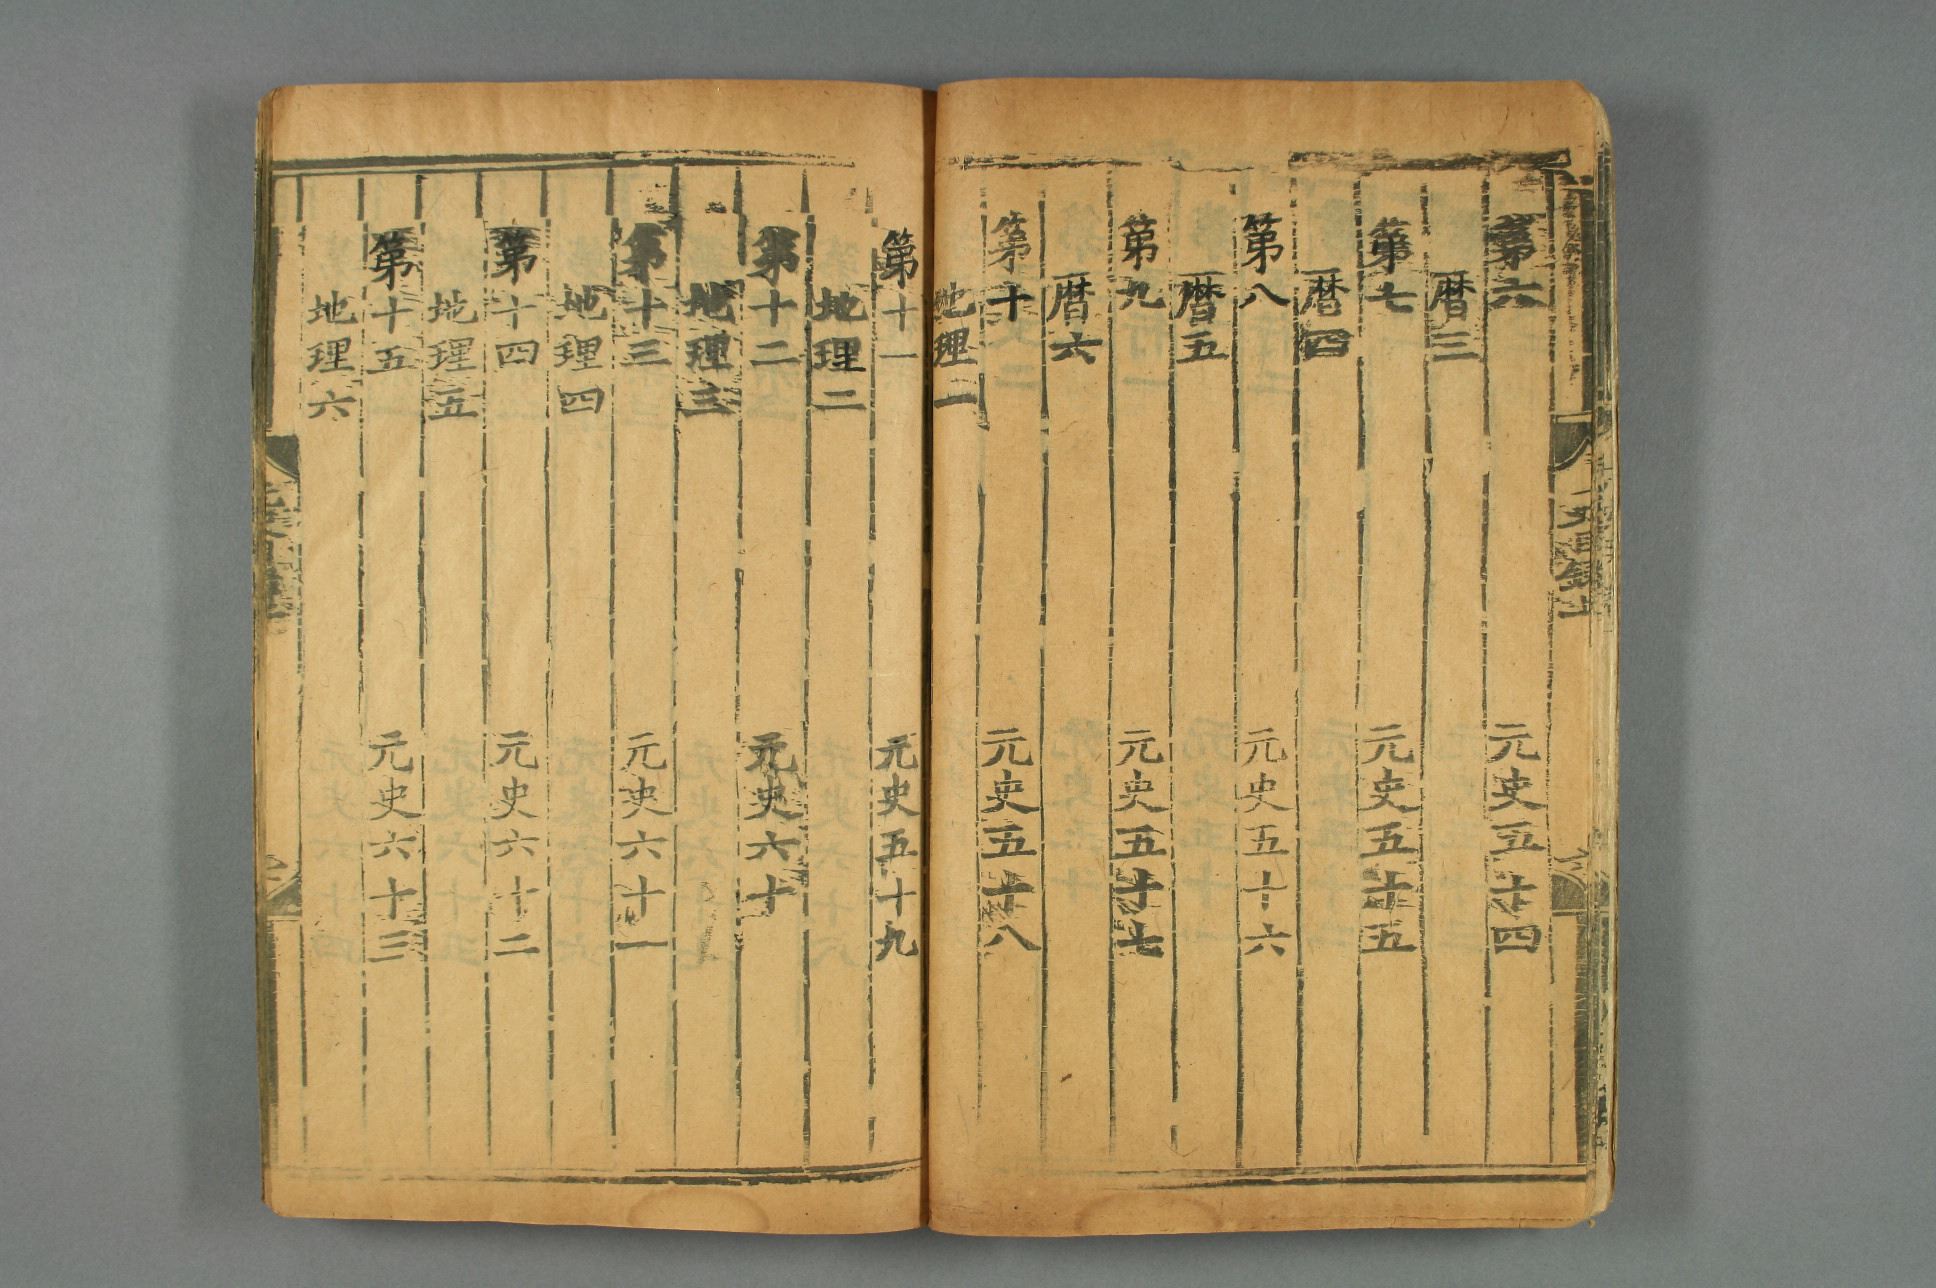 史目錄上
六
第六 元史五十四
暦三
第七 元史五十五
暦四
第八 元史五十六
暦五
第九 元史五十七
暦六
第十 元史五十八
地理
第十一 元史五十九
地理二
第十二 元史六十
地理三
第十三 元史六十一
地理四
第十四 元史六十二
地理五
第十五 元史六十三
地理六